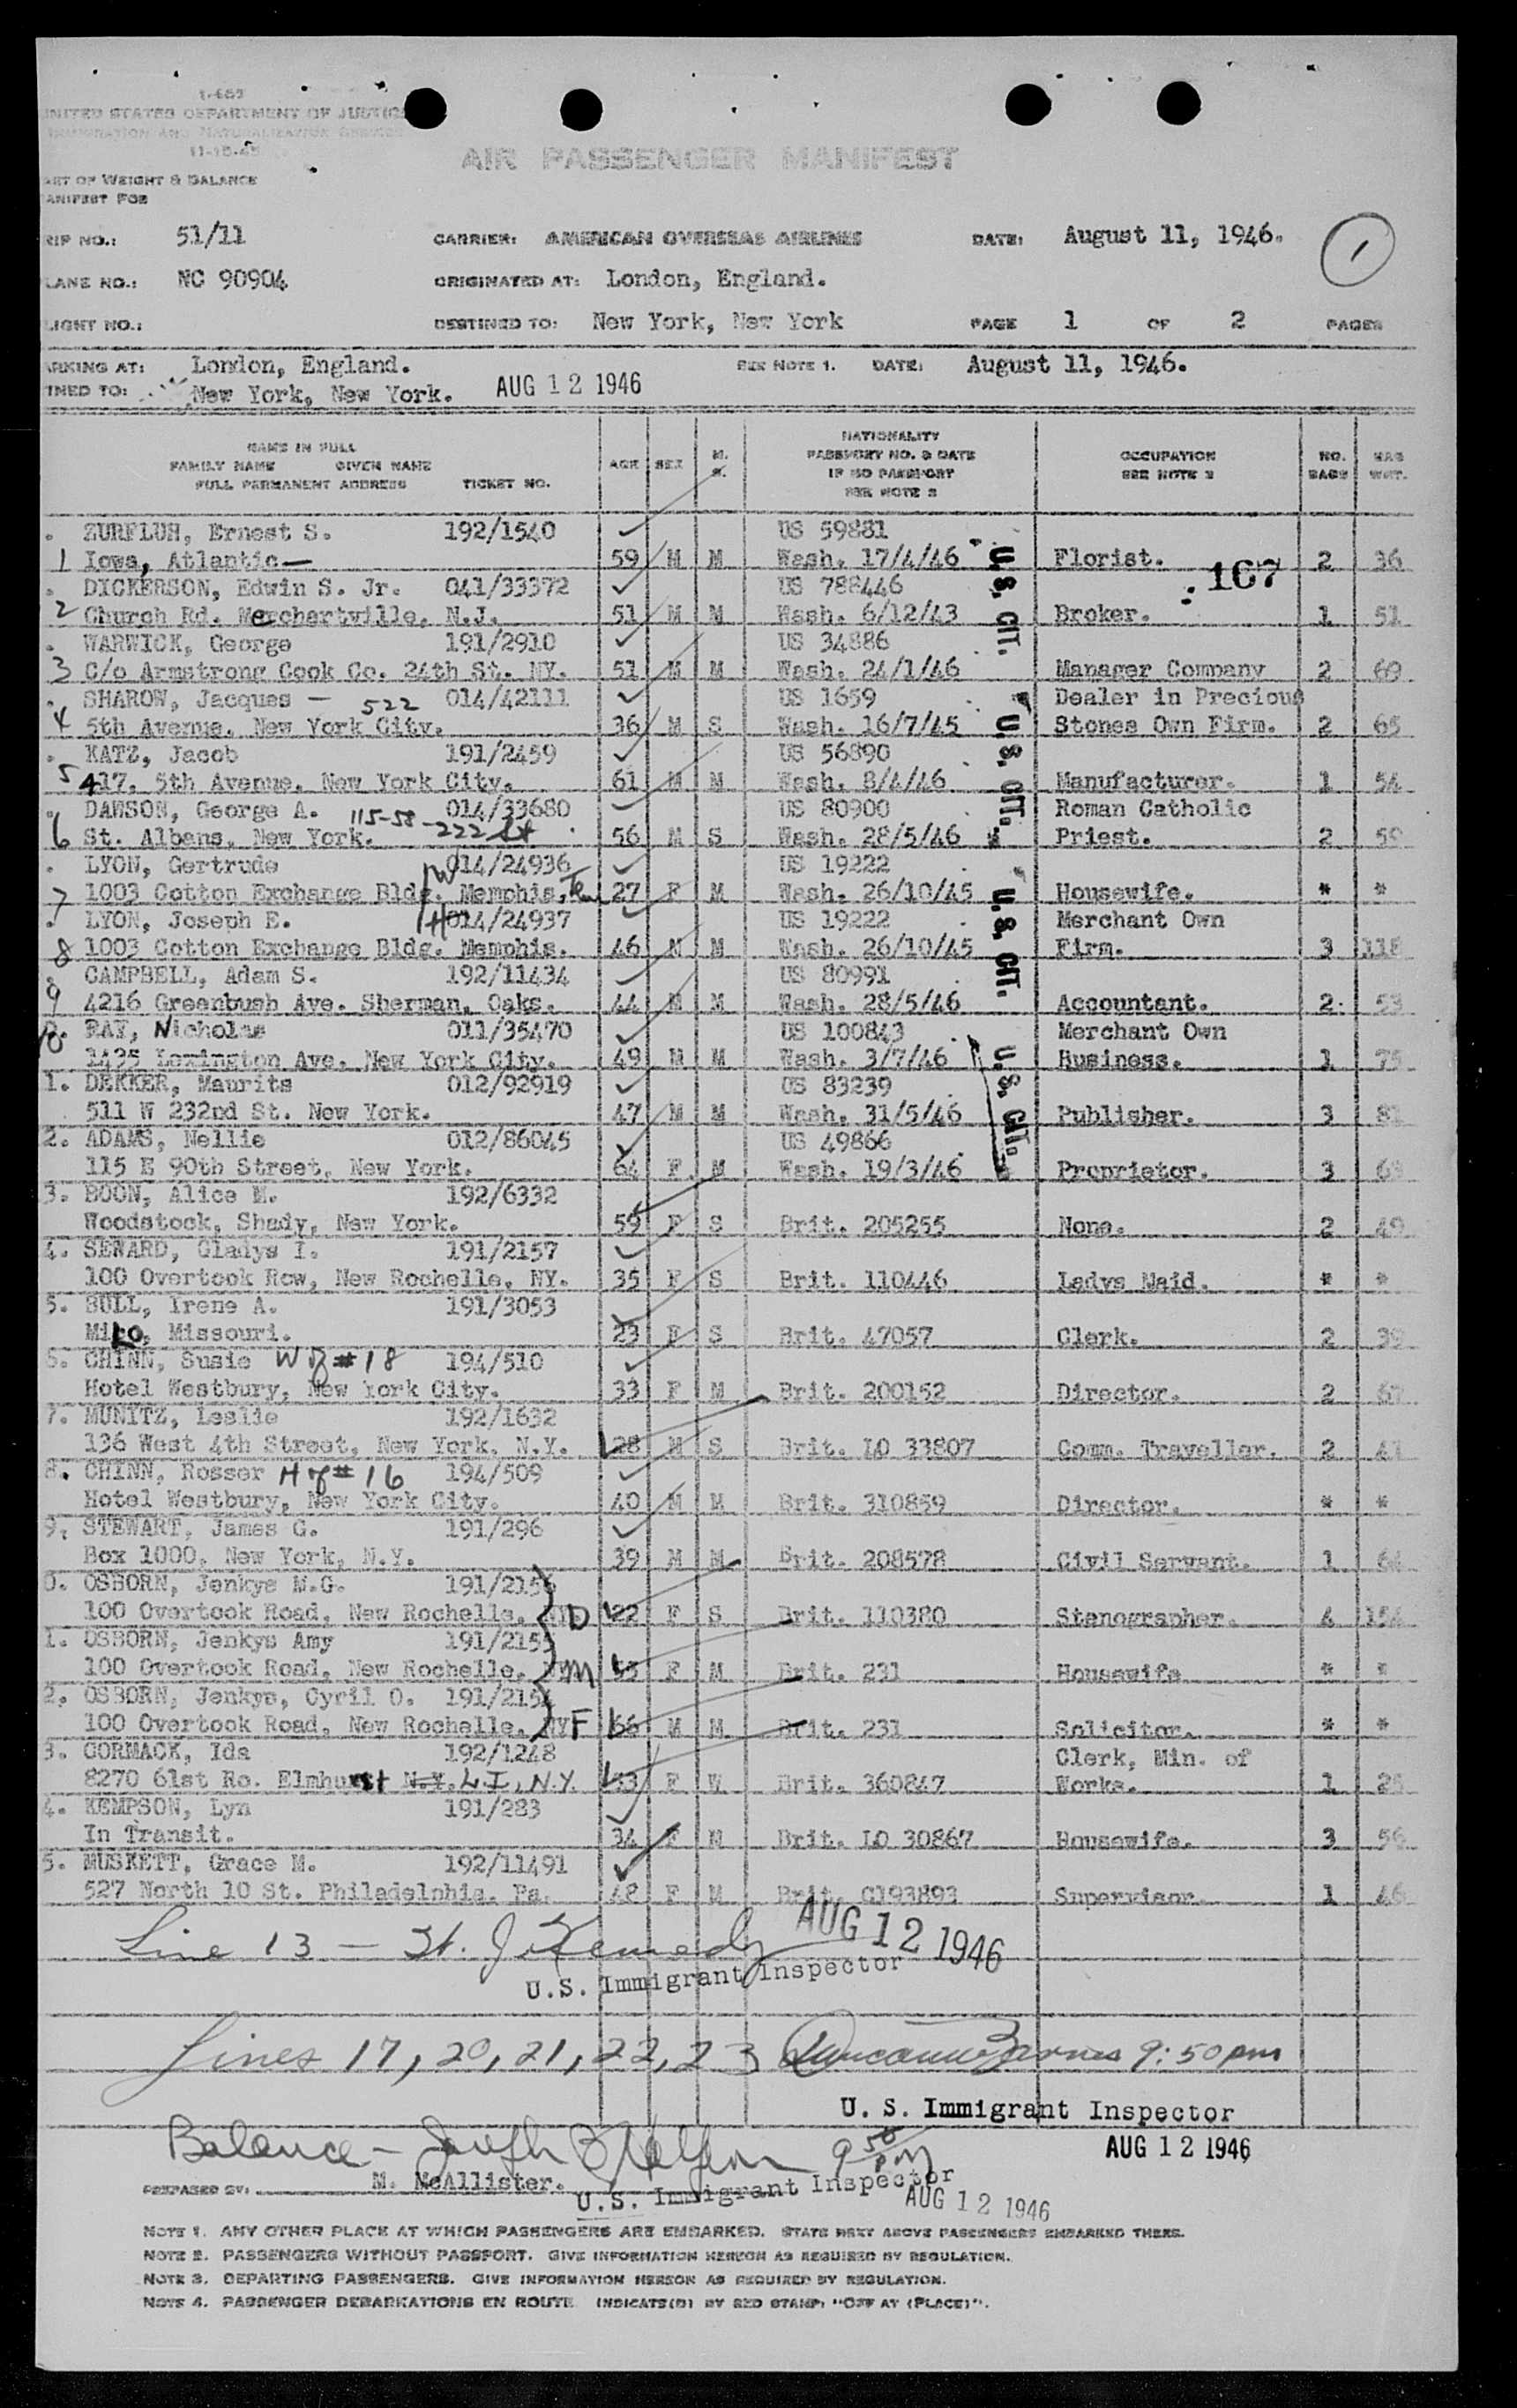 1-483
UNITED STATES DEPARTMENT OF JUSTICE
IMMIGRATION AND NATURALIZATION SERVICE
11-15-45
AIR PASSENGER MANIFEST
ART OF WEIGHT & BALANCE
ANIFEST FOR
RIP NO.: 51/11 CARRIER: AMERICAN OVERSEAS AIRLINES DATE: August 11, 1946. 1
LANE NO.: NC 90904 ORIGINATED AT: London, England.
LIGHT NO.: DESTINED TO: New York, New York PAGE 1 OF 2 PAGES
ARKING AT: London, England. SEE NOTE 1. DATE: August 11, 1946.
TINED TO: New York, New York. AUG 12 1946
NAME IN FULL
FAMILY NAME GIVEN NAME
FULL PERMANENT ADDRESS TICKET NO. AGE SEX M. S. NATIONALITY
PASSPORT NO. & DATE
IF NO PASSPORT
SEE NOTE 2 OCCUPATION
SEE NOTE 3 NO.
BAGS BAG
WGT.
. ZURFLUH, Ernest S. 192/1540 US 59881
1 Iowa, Atlantic— 59 M M Wash. 17/4/46 U.S. CIT. Florist. 2 36
167
. DICKERSON, Edwin S. Jr. 041/33372 US 788446
2 Church Rd. Merchartville, N.J. 51 M M Wash. 6/12/43 Broker. 1 51
. WARWICK, George 191/2910 US 34886
3 C/o Armstrong Cook Co. 24th St. NY. 51 M M Wash. 24/1/46 Manager Company 2 69
. SHAROW, Jacques — 522 014/42111 US 1659 Dealer in Precious
4 5th Avenue, New York City. 36 M S Wash. 16/7/45 U.S. CIT. Stones Own Firm. 2 65
. KATZ, Jacob 191/2459 US 56890
5 417, 5th Avenue, New York City. 61 M M Wash. 8/4/46 Manufacturer. 1 54
. DAWSON, George A. 115-58-222 St 014/33680 US 80900 Roman Catholic
6 St. Albans, New York. 56 M S Wash. 28/5/46 Priest. 2 59
. LYON, Gertrude W 014/24936 US 19222
7 1003 Cotton Exchange Bldg. Memphis, Ten 27 F M Wash. 26/10/45 U.S. CIT. Housewife. * *
. LYON, Joseph E. H 014/24937 US 19222 Merchant Own
8 1003 Cotton Exchange Bldg. Memphis. 46 M M Wash. 26/10/45 Firm. 3 118
. CAMPBELL, Adam S. 192/11434 US 80991
9 4216 Greenbush Ave. Sherman, Oaks. 44 M M Wash. 28/5/46 Accountant. 2 53
10. RAY, Nicholas 011/35470 US 100843 Merchant Own
1435 Lexington Ave. New York City. 49 M M Wash. 3/7/46 U.S. CIT. Business. 1 75
1. DEKKER, Maurits 012/92919 US 83239
511 W 232nd St. New York. 47 M M Wash. 31/5/46 Publisher. 3 81
2. ADAMS, Nellie 012/86045 US 49866
115 E 90th Street, New York. 64 F M Wash. 19/3/46 Proprietor. 3 63
3. BOON, Alice M. 192/6332
Woodstock, Shady, New York. 59 F S Brit. 205255 None. 2 49
4. SEWARD, Gladys I. 191/2157
100 Overtook Row, New Rochelle, NY. 35 F S Brit. 110446 Ladys Maid. * *
5. BULL, Irene A. 191/3053
Milo, Missouri. 23 F S Brit. 47057 Clerk. 2 39
6. CHINN, Susie W of #18 194/510
Hotel Westbury, New York City. 33 F M Brit. 200152 Director. 2 67
7. MUNITZ, Leslie 192/1632
136 West 4th Street, New York, N.Y. 28 M S Brit. LO 33807 Comm. Traveller. 2 41
8. CHINN, Rosser H of #16 194/509
Hotel Westbury, New York City. 40 M M Brit. 310859 Director. * *
9. STEWART, James G. 191/296
Box 1000, New York, N.Y. 39 M M Brit. 208578 Civil Servant. 1 64
0. OSBORN, Jenkys M.G. 191/2156
100 Overtook Road, New Rochelle, NY D 22 F S Brit. 110380 Stenographer. 4 154
1. OSBORN, Jenkys Amy 191/2155
100 Overtook Road, New Rochelle, M 53 F M Brit. 231 Housewife * *
2. OSBORN, Jenkys, Cyril O. 191/2154
100 Overtook Road, New Rochelle, NY F 66 M M Brit. 231 Solicitor. * *
3. CORMACK, Ida 192/1248 Clerk, Min. of
8270 61st Ro. Elmhurst N.Y. L.I., N.Y. 33 F W Brit. 360847 Works. 1 28
4. KEMPSON, Lyn 191/283
In Transit. 34 F M Brit. LO 30867 Housewife. 3 56
5. MUSKETT, Grace M. 192/11491
527 North 10 St. Philadelphia. Pa. 48 F M Brit. C193893 Supervisor. 1 46
Line 13 — St. J Kennedy AUG 12 1946
U.S. Immigrant Inspector
Lines 17, 20, 21, 22, 23 9:50 pm
U. S. Immigrant Inspector
AUG 12 1946
Balance — Joseph 9 50 pm
PREPARED BY: M. McAllister. U.S. Immigrant Inspector
AUG 12 1946
NOTE 1. ANY OTHER PLACE AT WHICH PASSENGERS ARE EMBARKED. STATE NEXT ABOVE PASSENGERS EMBARKED THERE.
NOTE 2. PASSENGERS WITHOUT PASSPORT. GIVE INFORMATION HEREON AS REQUIRED BY REGULATION.
NOTE 3. DEPARTING PASSENGERS. GIVE INFORMATION HEREON AS REQUIRED BY REGULATION.
NOTE 4. PASSENGER DEBARKATIONS EN ROUTE INDICATE(D) BY RED STAMP: "OFF AT (PLACE)".